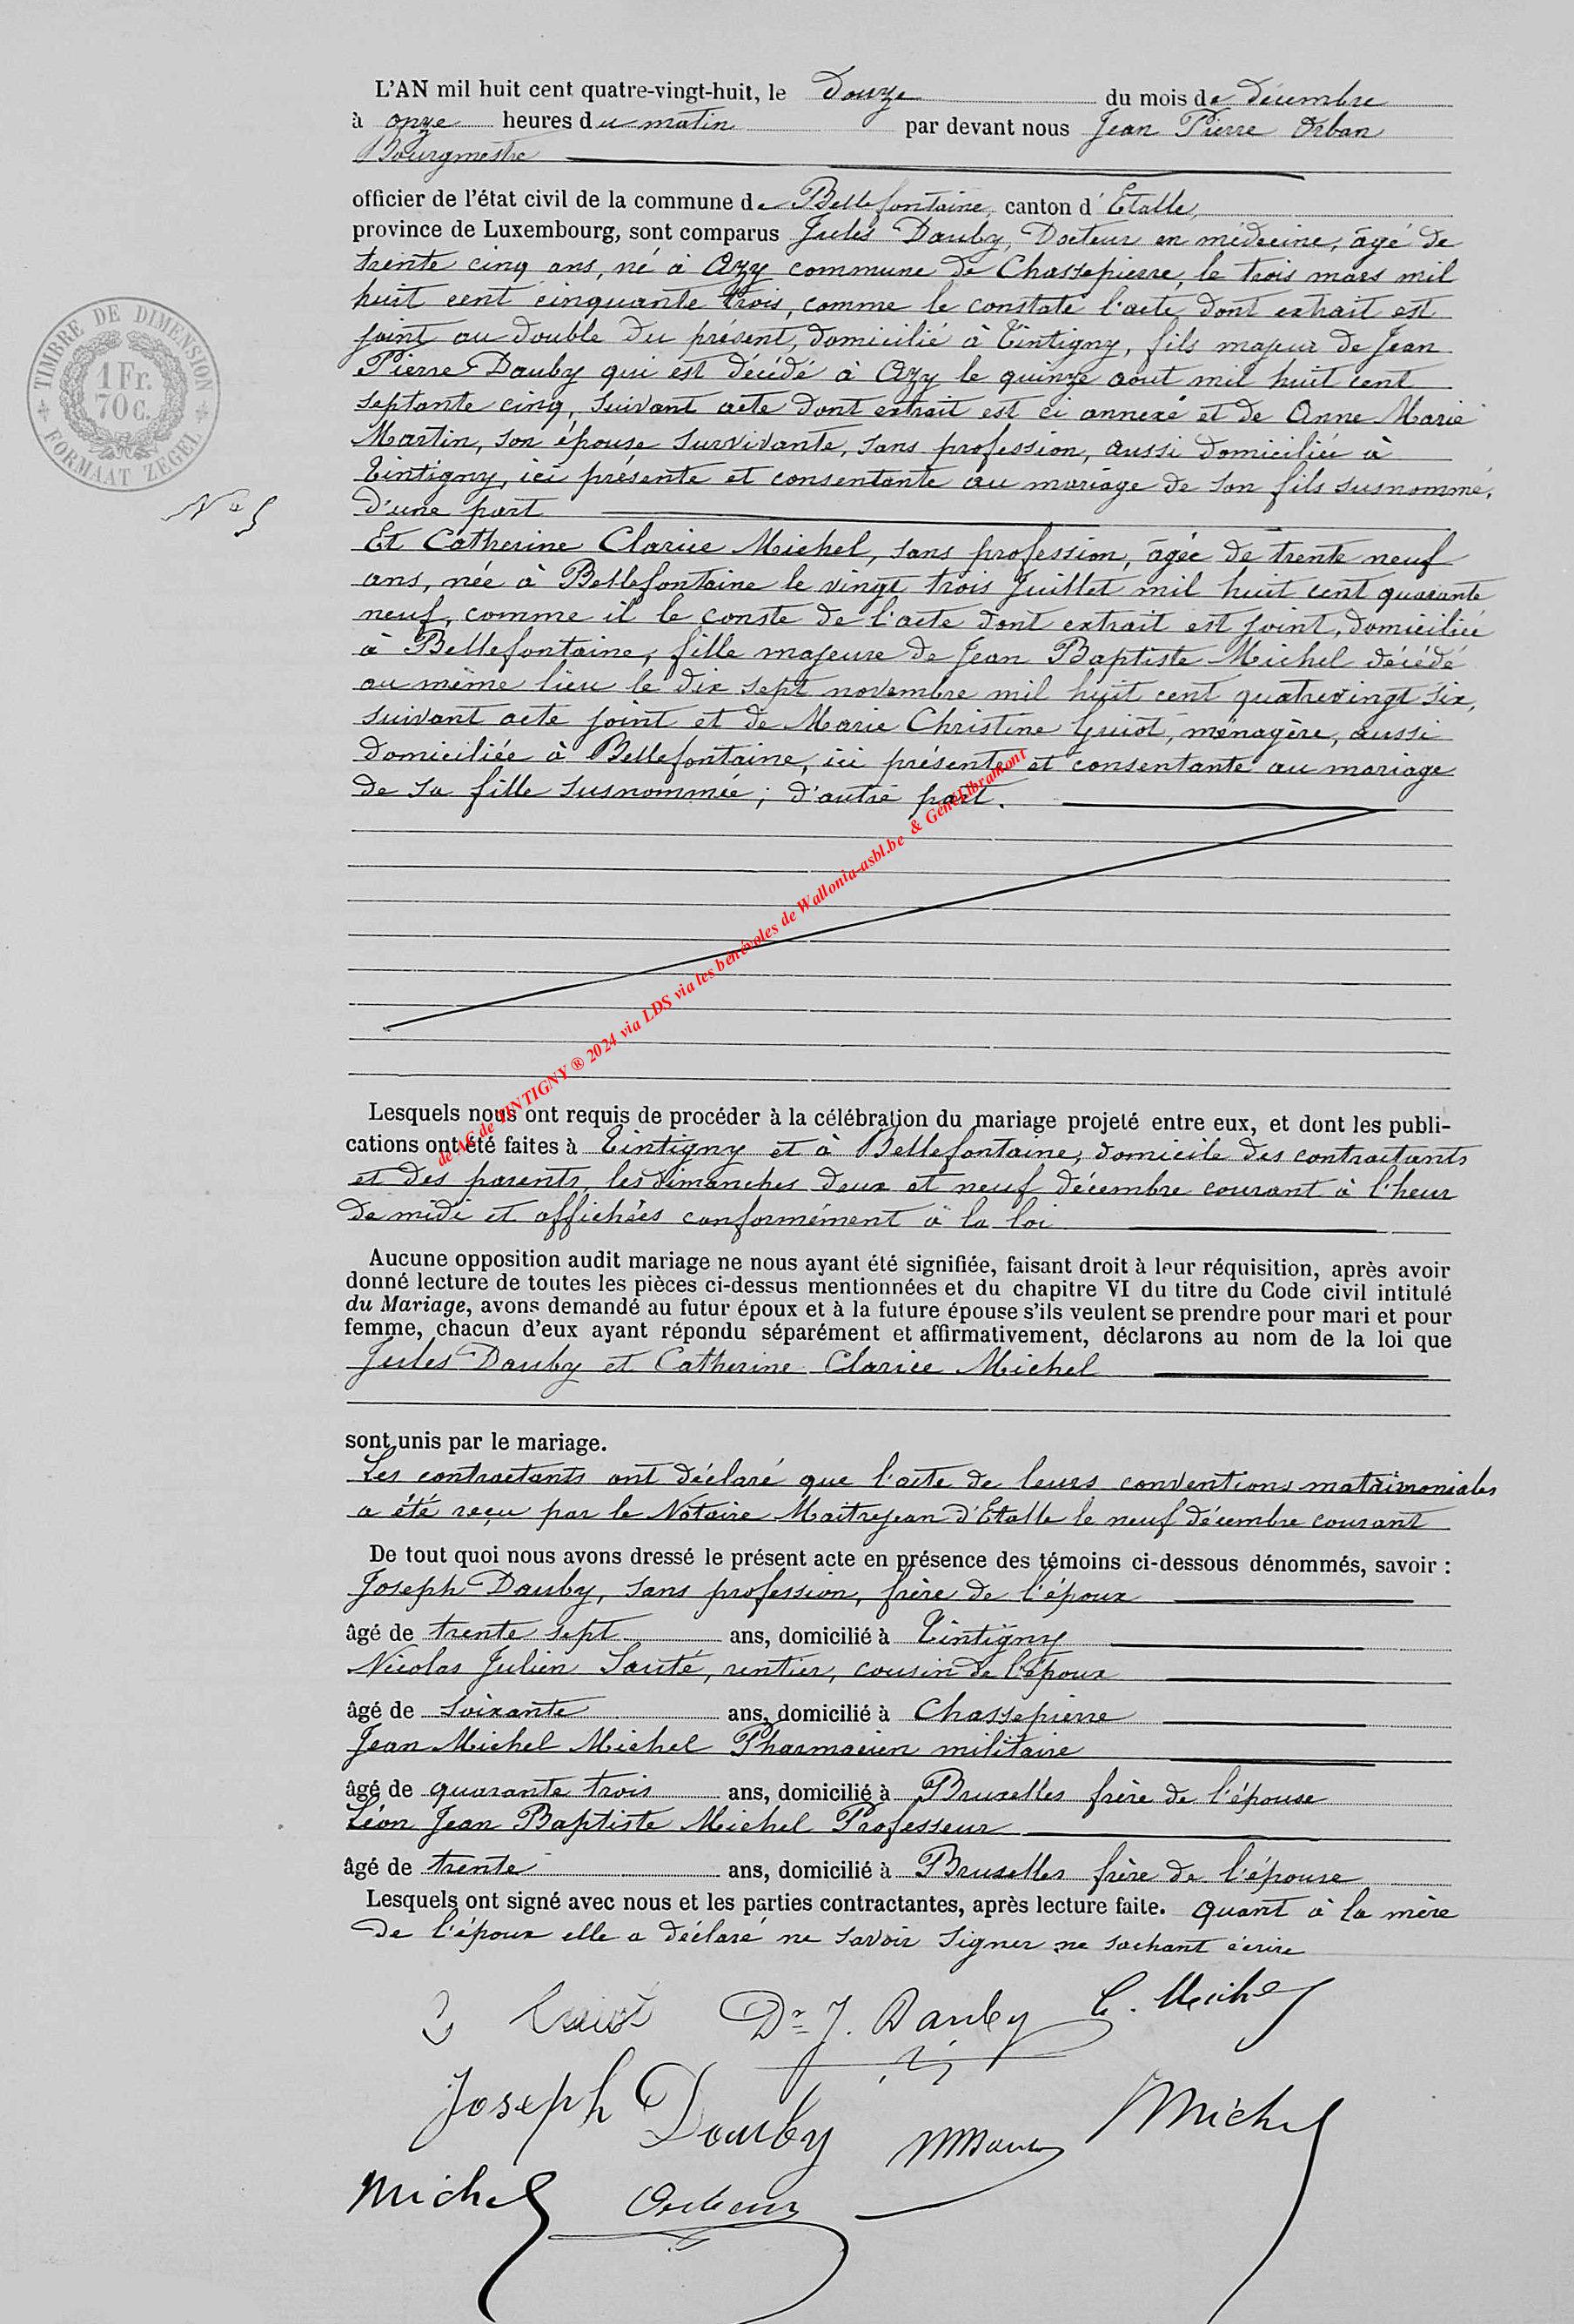 L'AN mil huit cent quatre-vingt-huit, le Douze du mois de décembre
à onze heures du matin par devant nous Jean Pierre Orban
Bourgmestre
officier de l'état civil de la commune de Bellefontaine, canton d'Etalle,
province de Luxembourg, sont comparus Jules Dauby, Docteur en médecine, âgé de
trente cinq ans, né à Azy commune de Chassepierre, le trois mars mil
huit cent cinquante trois, comme le constate l'acte dont extrait est
joint au double du présent, domicilié à Tintigny, fils majeur de Jean
Pierre Dauby qui est décédé à Azy le quinze aout mil huit cent
septante cinq, suivant acte dont extrait est ci annexé et de Anne Marie
Martin, son épouse survivante, sans profession, aussi domiciliée à
Tintigny, ici présente et consentante au mariage de son fils susnommé,
d'une part
TIMBRE DE DIMENSION
1 Fr.
70 c.
FORMAAT ZEGEL
No 5
Et Catherine Clarice Michel, sans profession, âgée de trente neuf
ans, née à Bellefontaine le vingt trois Juillet mil huit cent quarante
neuf, comme il le conste de l'acte dont extrait est joint, domiciliée
à Bellefontaine, fille majeure de Jean Baptiste Michel décédé
au même lieu le dix sept novembre mil huit cent quatrevingt six,
suivant acte joint et de Marie Christine Guiot, ménagère, aussi
domiciliée à Bellefontaine, ici présente et consentante au mariage
de sa fille susnommée; d'autre part.
de AC de TINTIGNY ® 2024 via LDS via les bénévoles de Wallonia-asbl.be & GénéLibramont
Lesquels nous ont requis de procéder à la célébration du mariage projeté entre eux, et dont les publi-
cations ont été faites à Tintigny et à Bellefontaine, domicile des contractants
et des parents, les dimanches deux et neuf décembre courant à l'heur
de midi et affichées conformément à la loi
Aucune opposition audit mariage ne nous ayant été signifiée, faisant droit à leur réquisition, après avoir
donné lecture de toutes les pièces ci-dessus mentionnées et du chapitre VI du titre du Code civil intitulé
du Mariage, avons demandé au futur époux et à la future épouse s'ils veulent se prendre pour mari et pour
femme, chacun d'eux ayant répondu séparément et affirmativement, déclarons au nom de la loi que
Jules Dauby et Catherine Clarice Michel
sont unis par le mariage.
Les contractants ont déclaré que l'acte de leurs conventions matrimoniales
a été reçu par le Notaire Maitrejean d'Etalle le neuf décembre courant
De tout quoi nous avons dressé le présent acte en présence des témoins ci-dessous dénommés, savoir :
Joseph Dauby, sans profession, frère de l'époux
âgé de trente sept ans, domicilié à Tintigny
Nicolas Julien Sauté, rentier, cousin de l'époux
âgé de soixante ans, domicilié à Chassepierre
Jean Michel Michel Pharmacien militaire
âgé de quarante trois ans, domicilié à Bruxelles frère de l'épouse
Léon Jean Baptiste Michel Professeur
âgé de trente ans, domicilié à Bruxelles frère de l'épouse
Lesquels ont signé avec nous et les parties contractantes, après lecture faite. quant à la mère
de l'époux elle a déclaré ne savoir signer ne sachant écrire
Dr J. Dauby C. Michel
Joseph Dauby Michel
Michel Orban